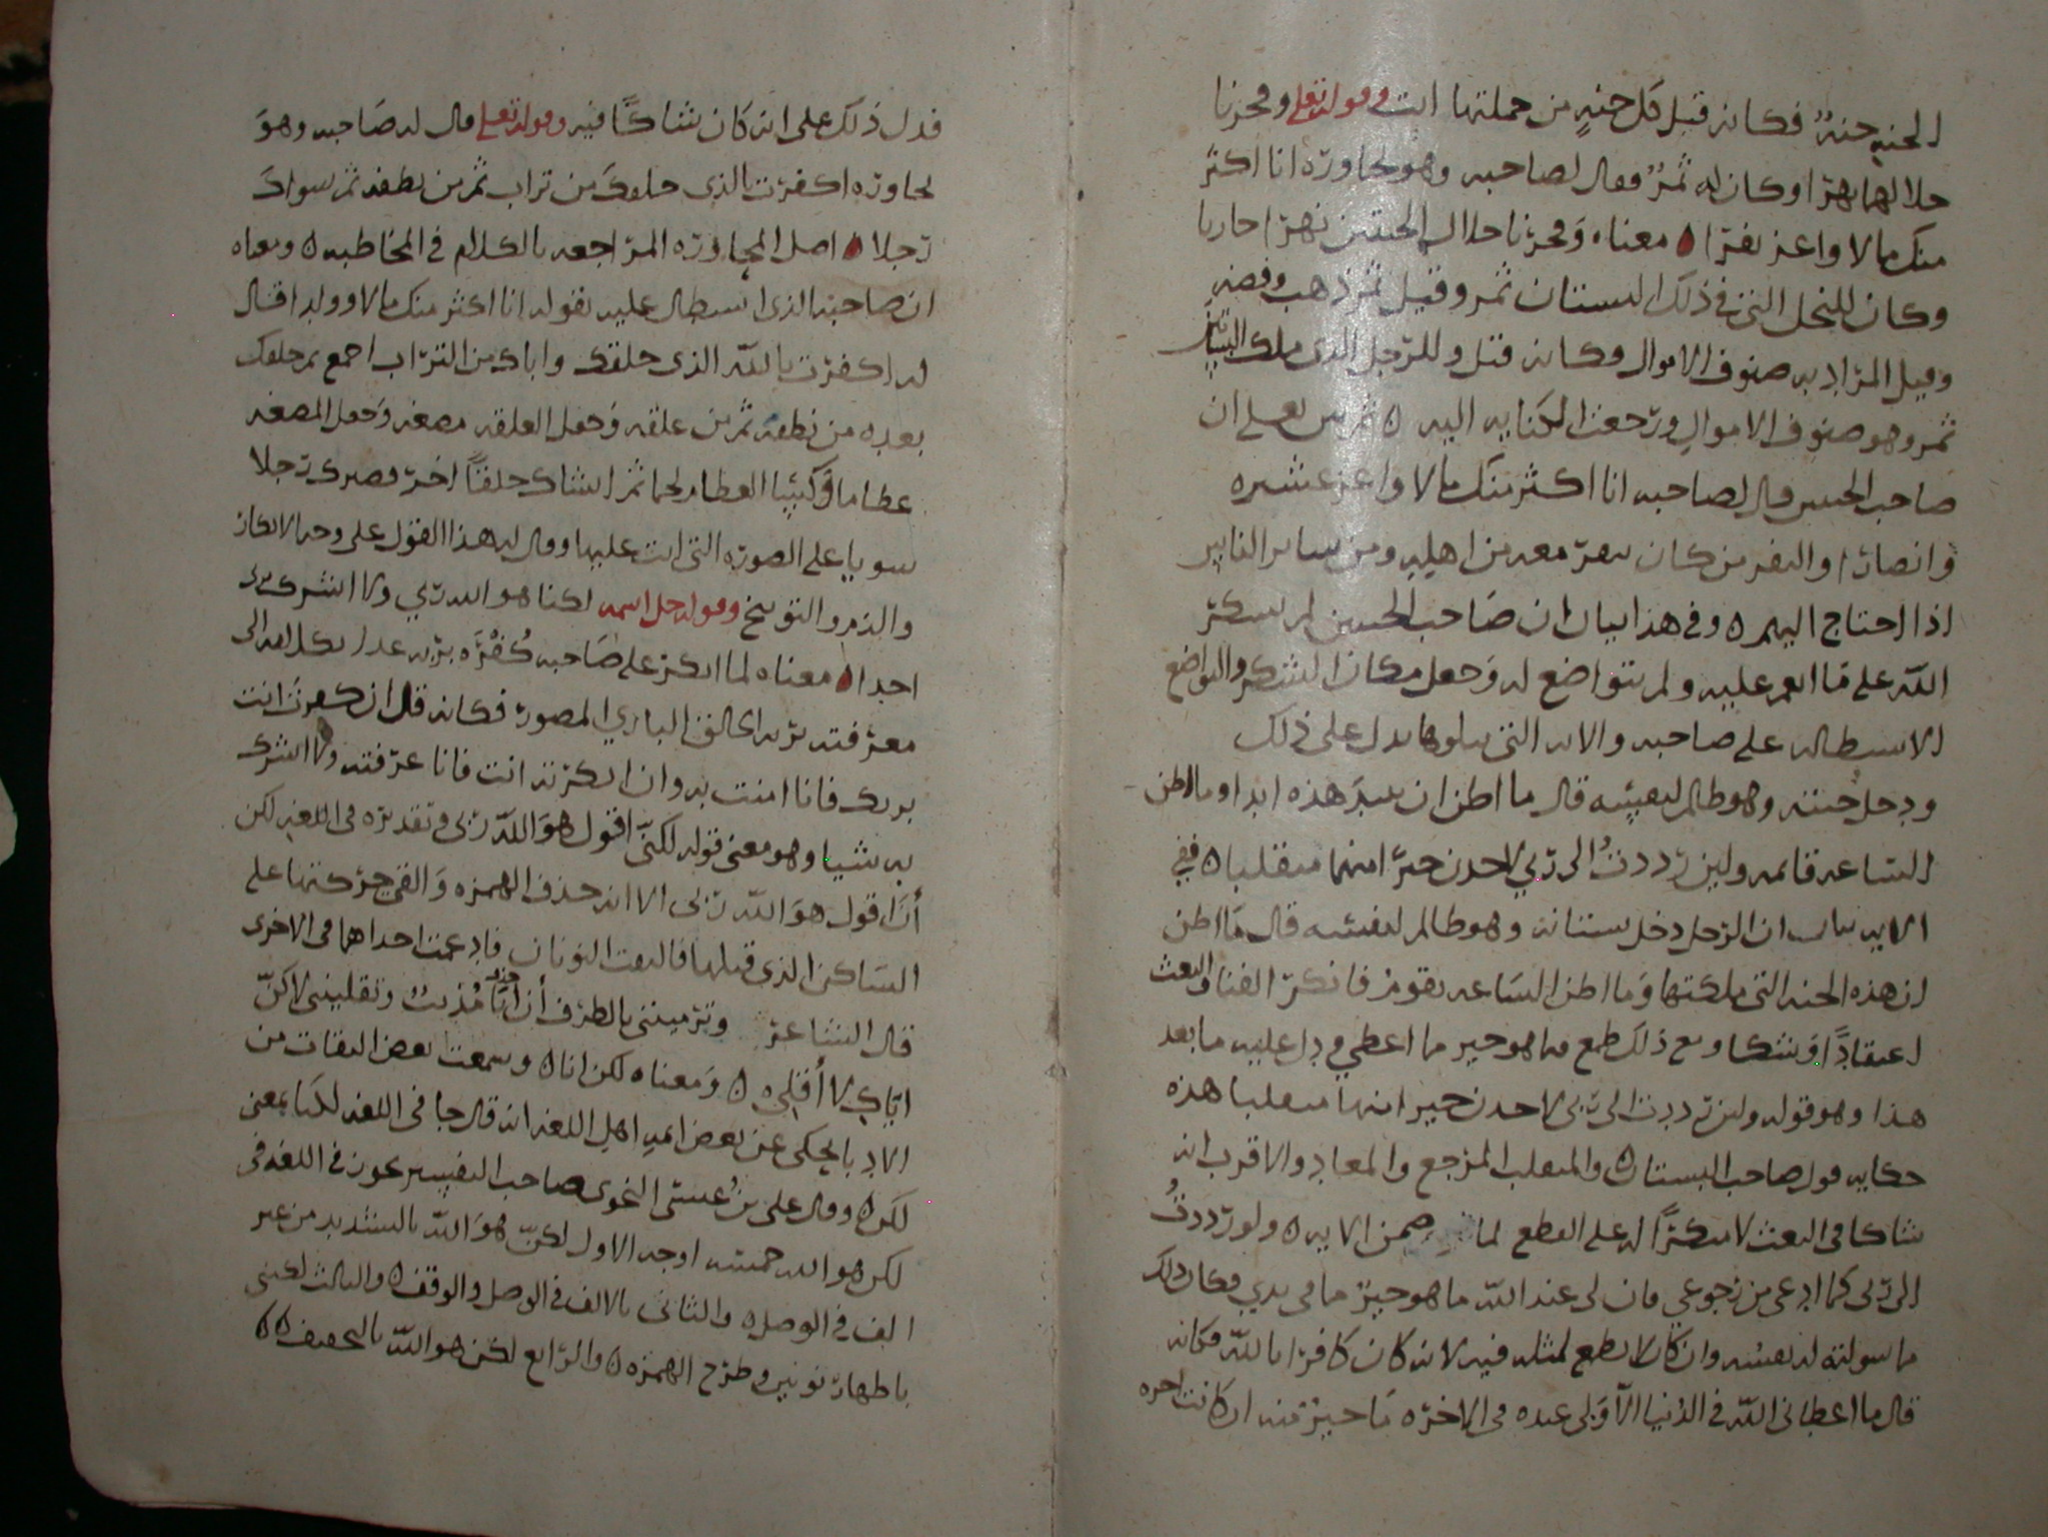 الجنه جنةٌ فكانه قيل كل جنه من جملتها اتت وقوله تعلى وفجرنا
خلالهما نهرا وكان له ثمرٌ فقال لصاحبه وهو يحاوره انا اكثر
منك مالا واعز نفرا ه معناه وفجرنا خلال الجنتين نهرا جاريا
وكان للنخل التى فى ذلك البستان ثمر وقيل ثمر ذهب وفضه
وقيل المراد به صنوف الاموال وكانه قيل وللرجل الذى ملك البساتين
ثمر وهو صنوف الاموال ورجعت الكنايه اليه ه ثم بين تعلى ان
صاحب الجنتين قال لصاحبه انا اكثر منك مالا واعز عشيره
وانصارا والنفر من كان ينفر معه من اهليه ومن ساير الناس
اذا احتاج اليهم ه وفى هذا بيان ان صاحب الجنتين لم يشكر
الله على ما انعم عليه ولم يتواضع له وجعل مكان الشكر والتواضع
الاستطاله على صاحبه والايه التى يتلوها يدل على ذلك
ودخل جنته وهو ظالم لنفسه قال ما اظن ان تبيد هذه ابدا وما اظن
الساعه قايمه ولين رددتُ الى ربي لاجدن خيرا منها منقلبا ه ففى
الايه بيان ان الرجل دخل بستانه وهو ظالم لنفسه قال ما اظن
ان هذه الجنه التى ملكتها وما اظن الساعه تقوم فانكر الفنا والبعث
اعتقادًا وشكا ومع ذلك طمع فيما هو خير مما اعطي ودل عليه ما بعد
هذا وهو قوله ولين رددت الى ربى لاجدن خير امنها منقلبا هذه
حكايه قول صاحب البستان ه والمنقلب المرجع والمعاد والاقرب انه
شاكا فى البعث لا منكرًا له على القطع لما ضمن الايه ه ولو رددتُ
الى ربى كما ادعى من رجوعي فان لى عند الله ما هو خير مما فى يدي فكان ذلك
ما سولته له نفسه وان كان لا يطمع لمثله فيه لانه كان كافرا بالله فكانه
قال ما اعطانى الله فى الدنيا الا ولى عنده فى الاخره ما خير منه ان كانت اخره
فدل ذلك على انه كان شاكًا فيه وقوله تعلى قال له صاحبه وهو
يحاوره اكفرت بالذى خلقك من تراب ثم من نطفه ثم سواك
رجلا ه اصل المحاوره المراجعه بالكلام فى المخاطبه ه ومعناه
ان صاحبه الذى استطال عليه بقوله انا اكثر منك مالا وولدا قال
له اكفرت بالله الذى خلقك واباك من التراب اجمع ثم خلقك
بعده من نطفه ثم من علقه وجعل العلقه مضغه وجعل المضغه
عظاما وكسا العظام لحما ثم انشاك خلقًا اخر فصيرك رجلا
سويا على الصوره التى انت عليها وقال له هذا القول على وجه الانكار
والذم والتوبيخ وقوله جل اسمه لكنا هو الله ربي ولا اشرك بربى
احدا ه معناه لما انكر على صاحبه كُفْرَه بربه عدل بكلامه الى
معرفته بربه الخالق الباري المصور فكانه قال ان كفرت انت
بربك فانا امنت به وان انكرته انت فانا عرفته ولا اشرك
به شيا وهو معنى قوله لكنّى اقول هو الله ربى وتقديره فى اللغه لكن
أنا اقول هو الله ربى الا انه حذف الهمزه والقى حركتها على
الساكن الذى قبلها فالتقت النونان فادغمت احداهما فى الاخرى
قال الشاعر وترميننى بالطرف أن انتَ مُذنبٌ وتقليننى لاكنّ
ايّاكِ لا أقلى ه ومعناه لكن انا ه وسمعت بعض الثقات من
الادبا يحكى عن بعض ايمه اهل اللغه انه قال جا فى اللغه لكنا بمعنى
لكن ه وقال على بنُ عيسى النحوى صاحب التفسير يجوز فى اللغه فى
لكن هو الله خمسه اوجه الاول لكنّ هو الله بالتشديد من غير
الف فى الوصل ه والثانى بالالف فى الوصل والوقف ه والثالث لكننى
باظهار نونين وطرح الهمزه ه والرابع لكن هو الله بالتخفيف ه ه